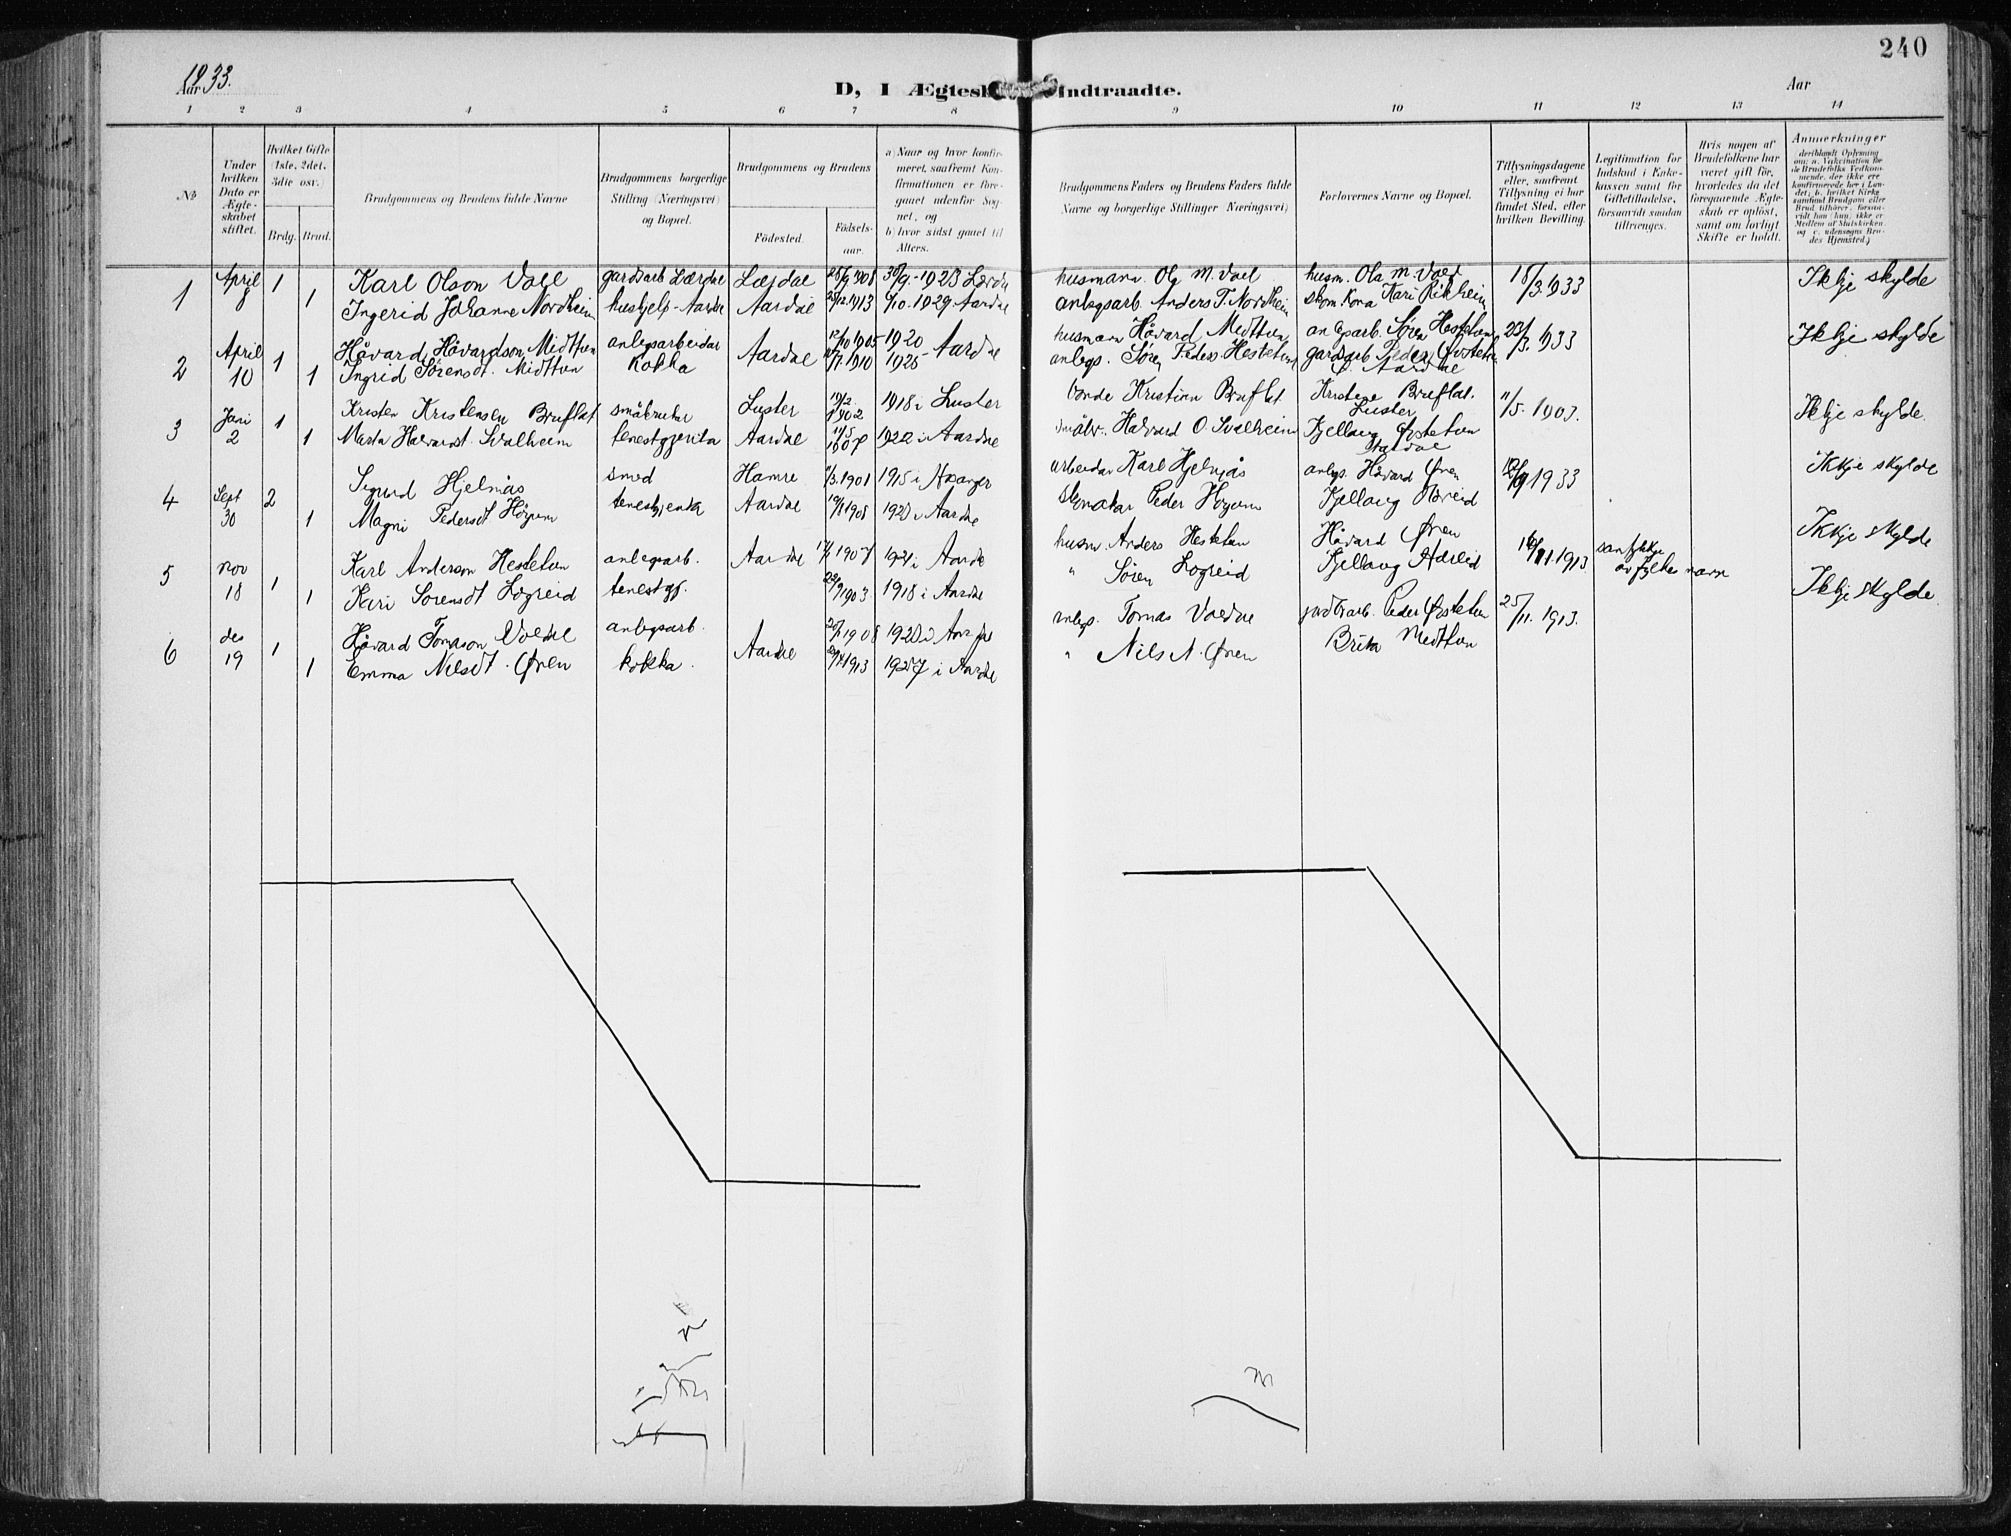 240
Aar 1933.
D, I Ægtesk Indtraadte.
Aar
1 2 3 4 5 6 7 8 9 10 11 12 13 14
No
Under hvilken Dato er Ægteskabet stiftet.
Hvilket Gifte (1ste, 2det, 3die osv.)
Brdg. Brud.
Brudgommens og Brudens fulde Navne
Brudgommens borgerlige Stilling (Næringsvei) og Bopæl.
Brudgommens og Brudens
Födested. Födselsaar.
a) Naar og hvor konfirmeret, saafremt Konfirmationen er foregaaet udenfor Sognet, og
b) hvor sidst gaaet til Alters.
Brudgommens Faders og Brudens Faders fulde Navne og borgerlige Stillinger (Næringsvei)
Forlovernes Navne og Bopæl.
Tillysningsdagene eller, saafremt Tillysning ei har fundet Sted, efter hvilken Bevilling.
Legitimation for Indskud i Enkekassen samt for Giftetilladelse, forsaavidt saadan tiltrænges.
Hvis nogen af Brudefolkene har været gift för, hvorledes da det foregaaende Ægteskab er oplöst, samt om lovligt Skifte er holdt.
Anmerkninger
deriblandt Oplysning om: a. Vakcination for de Brudefolks Vedkommende, der ikke ere konfirmerede her i Landet; b. hvilket Kirkesamfund Brudgom eller Brud tilhörer, forsaavidt han (hun) ikke er Medlem af Statskirken, og c. udensogns Brudes Hjemsted.)
1 April 8 1 Karl Olson Voll gardsarb Lærdal Lærdal 28/9 1908 30/9-1923 Lærdal husmann Ola M. Voll husm. Ola M. Voll 18/3 1933 Ikkje skylde
1 Ingerid Johanne Nordheim hushjelp-Aardal Aardal 1913 /10-1929 Aardal anlegsarb. Anders T. Nordheim Kari Rikheim
2 April 10 1 Håvard Håvardson Midttun anlegsarbeidar Aardal 12/10 1905 1920 Aardal husmann Håvard Midttun anlegsarb. Søren Hestetun 23/3 1933 Ikkje skylde
1 Ingrid Sörensdt. Midttun Kokka 1910 1925 anlegs. Søren Peders Hestetun gardsarb Peder Øvstetun
Aardal
3 Juni 2 1 Kristen Kristensen Bruflat småbrukar Luster 1902 1918 i Luster bonde Kristian Bruflat Kristian Bruflat. Luster 11/5. 1903. Ikkje skylde.
1 Marta Halvardsdt. Svalheim tenestgjenta Aardal 1907 1922 i Aardal Halvard O. Svalheim Kjellaug Øvstetun
4 Sept 30 2 Sigurd Hjelmås smed Hamre /3.1901 1915 i arbeidar Karl Hjelmås anlegs. Håvard Øren /9 1933 Ikkje skylde
1 Magni Pedersdt Höyum tenestgjenta Aardal 1908 1923 i Aardal Peder Höyum Kjellaug Hæreid
5 nov 18 1 Karl Anderson Hestetun anlegsarb. Aardal 1907 1921 i Aardal husm. Anders Hestetun Håvard Øren 16/11 1913 Ikkje skylde
1 Kari Sorensdt Lögreid tenestgj. 1903 1918 i Aardal " Sören Lögreid Kjellaug Hæreid
6 des 19 1 Håvard Tomason Voldal anlegsarb. Aardal 1908 1923 i Aardal anlegs. Tomas Voldal Peder Øvstetun 25/11. 1913. Ikkje skylde.
1 Emma Nilsdt. Øren kokka. 1913 1927 i Aardal " Nils N. Øren Brita Midttun